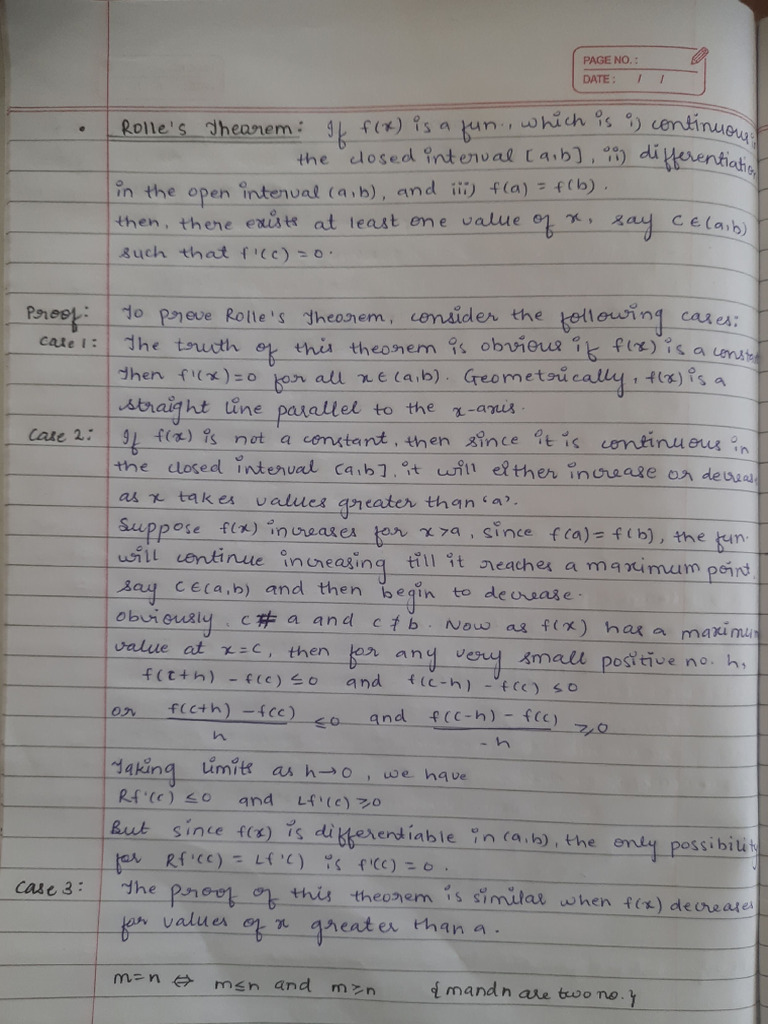 PAGE NO.:
DATE: / /
• Rolle's Thearem: If f(x) is a fun., which is i) continuous in
the closed interval [a,b], ii) differentiation
in the open interval (a,b), and iii) f(a) = f(b).
then, there exists at least one value of x, say C ∈ (a,b)
such that f'(c) = 0.
Proof: To prove Rolle's Thearem, consider the following cases:
Case 1: The truth of this theorem is obvious if f(x) is a const
Then f'(x)=0 for all x ∈ (a,b). Geometrically, f(x) is a
straight line parallel to the x-axis.
Case 2: If f(x) is not a constant, then since it is continuous in
the closed interval [a,b], it will either increase or decreas
as x takes values greater than 'a'.
Suppose f(x) increases for x>a, since f(a) = f(b), the fun.
will continue increasing till it reaches a maximum point,
say C ∈ (a,b) and then begin to decrease.
obviously, c ≠ a and c ≠ b. Now as f(x) has a maximum
value at x=c, then for any very small positive no. h,
f(c+h) - f(c) ≤ 0 and f(c-h) - f(c) ≤ 0
or f(c+h) - f(c) / h ≤ 0 and f(c-h) - f(c) / -h ≥ 0
Taking limits as h→0, we have
Rf'(c) ≤ 0 and Lf'(c) ≥ 0
But since f(x) is differentiable in (a,b), the only possibility
for Rf'(c) = Lf'() is f'(c) = 0.
Case 3: The proof of this theorem is similar when f(x) decreases
for values of x greater than a.
m=n ⇔ m≤n and m≥n {m and n are two no.}